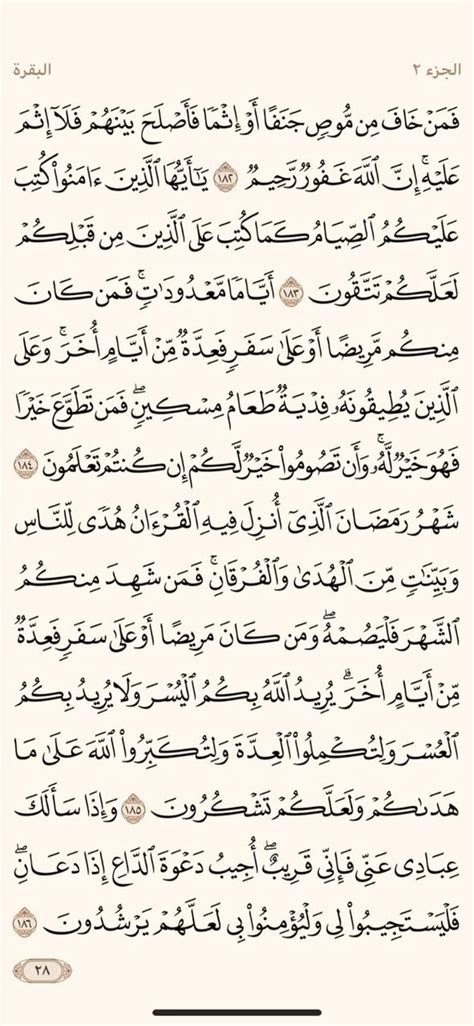 الجزء ٢ البقرة
فَمَنْ خَافَ مِن مُّوصٍ جَنَفًا أَوْ إِثْمًا فَأَصْلَحَ بَيْنَهُمْ فَلَآ إِثْمَ
عَلَيْهِ ۚ إِنَّ ٱللَّهَ غَفُورٌ رَّحِيمٌ ١٨٢ يَـٰٓأَيُّهَا ٱلَّذِينَ ءَامَنُوا۟ كُتِبَ
عَلَيْكُمُ ٱلصِّيَامُ كَمَا كُتِبَ عَلَى ٱلَّذِينَ مِن قَبْلِكُمْ
لَعَلَّكُمْ تَتَّقُونَ ١٨٣ أَيَّامًا مَّعْدُودَٰتٍ ۚ فَمَن كَانَ
مِنكُم مَّرِيضًا أَوْ عَلَىٰ سَفَرٍ فَعِدَّةٌ مِّنْ أَيَّامٍ أُخَرَ ۚ وَعَلَى
ٱلَّذِينَ يُطِيقُونَهُۥ فِدْيَةٌ طَعَامُ مِسْكِينٍ ۖ فَمَن تَطَوَّعَ خَيْرًا
فَهُوَ خَيْرٌ لَّهُۥ ۚ وَأَن تَصُومُوا۟ خَيْرٌ لَّكُمْ إِن كُنتُمْ تَعْلَمُونَ ١٨٤
شَهْرُ رَمَضَانَ ٱلَّذِىٓ أُنزِلَ فِيهِ ٱلْقُرْءَانُ هُدًى لِّلنَّاسِ
وَبَيِّنَـٰتٍ مِّنَ ٱلْهُدَىٰ وَٱلْفُرْقَانِ ۚ فَمَن شَهِدَ مِنكُمُ
ٱلشَّهْرَ فَلْيَصُمْهُ ۖ وَمَن كَانَ مَرِيضًا أَوْ عَلَىٰ سَفَرٍ فَعِدَّةٌ
مِّنْ أَيَّامٍ أُخَرَ ۗ يُرِيدُ ٱللَّهُ بِكُمُ ٱلْيُسْرَ وَلَا يُرِيدُ بِكُمُ
ٱلْعُسْرَ وَلِتُكْمِلُوا۟ ٱلْعِدَّةَ وَلِتُكَبِّرُوا۟ ٱللَّهَ عَلَىٰ مَا
هَدَىٰكُمْ وَلَعَلَّكُمْ تَشْكُرُونَ ١٨٥ وَإِذَا سَأَلَكَ
عِبَادِى عَنِّى فَإِنِّى قَرِيبٌ ۖ أُجِيبُ دَعْوَةَ ٱلدَّاعِ إِذَا دَعَانِ ۖ
فَلْيَسْتَجِيبُوا۟ لِى وَلْيُؤْمِنُوا۟ بِى لَعَلَّهُمْ يَرْشُدُونَ ١٨٦
٢٨